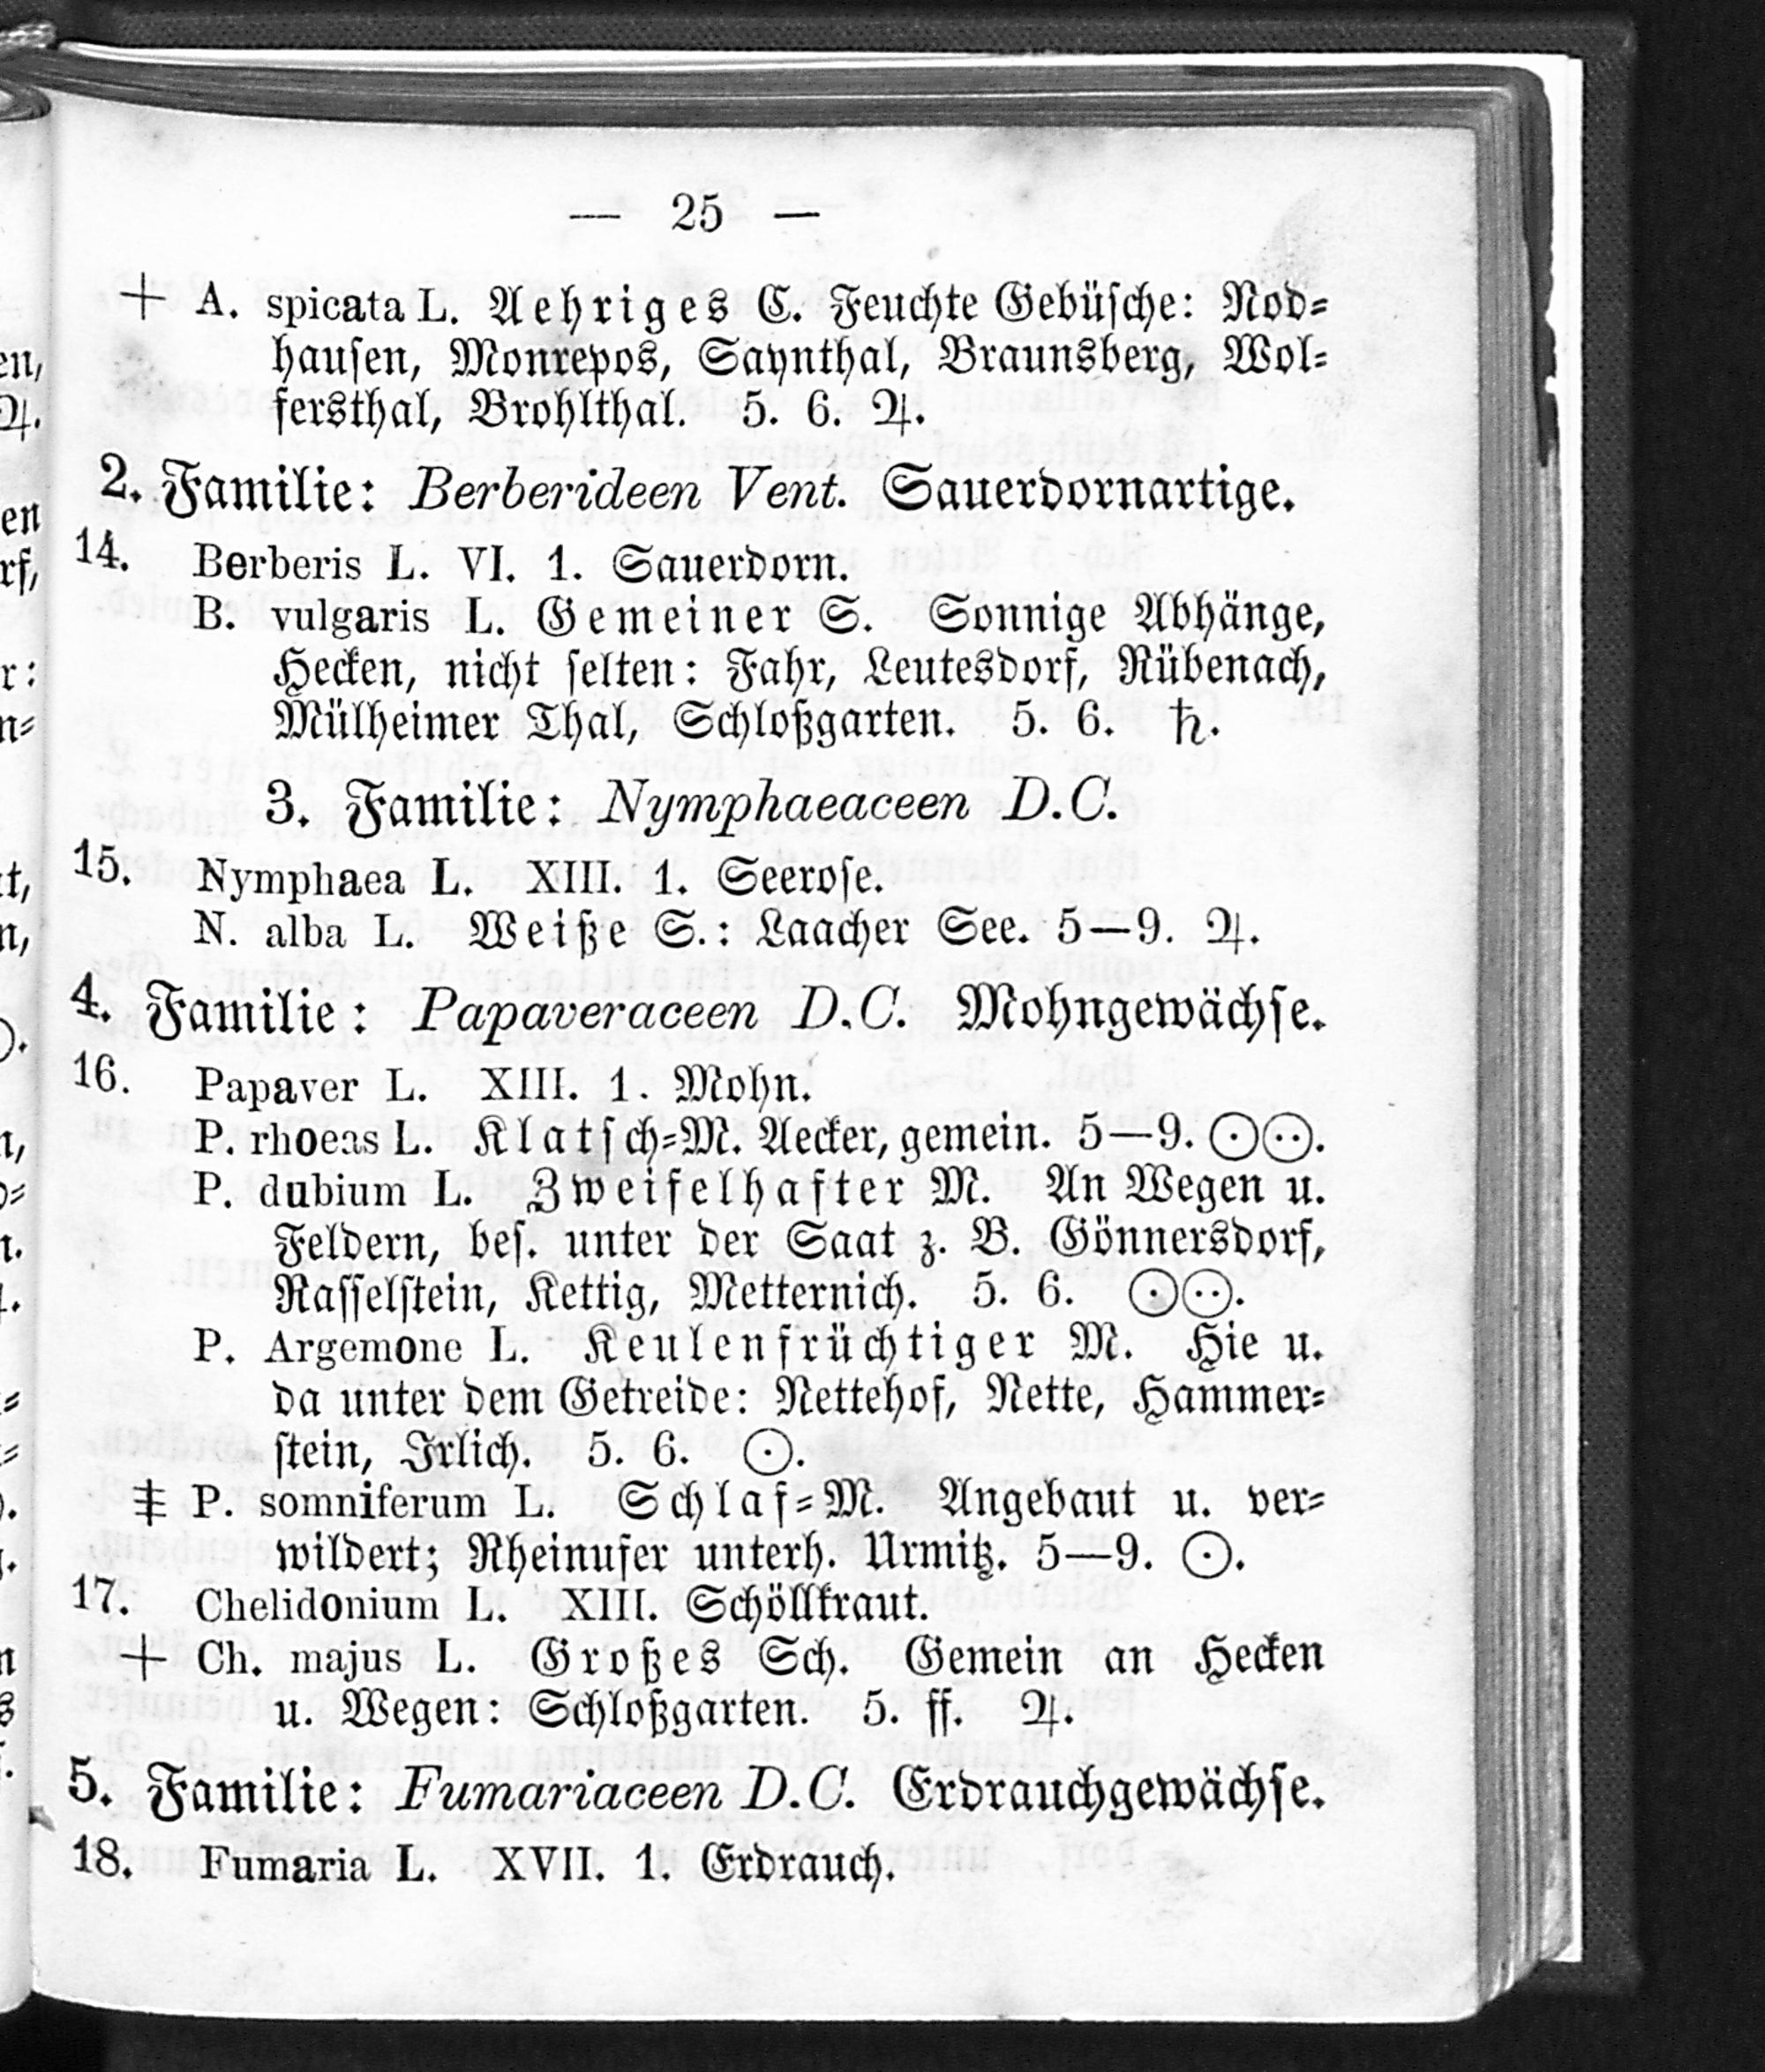 — 25 —
+ A. spicata L. Aehriges C. Feuchte Gebüsche: Nod-
hausen, Monrepos, Saynthal, Braunsberg, Wol-
fersthal, Brohlthal. 5. 6. ♃.
2. Familie: Berberideen Vent. Sauerdornartige.
14. Berberis L. VI. 1. Sauerdorn.
B. vulgaris L. Gemeiner S. Sonnige Abhänge,
Hecken, nicht selten: Fahr, Leutesdorf, Rübenach,
Mülheimer Thal, Schloßgarten. 5. 6. ♄.
3. Familie: Nymphaeaceen D.C.
15. Nymphaea L. XIII. 1. Seerose.
N. alba L. Weiße S.: Laacher See. 5—9. ♃.
4. Familie: Papaveraceen D.C. Mohngewächse.
16. Papaver L. XIII. 1. Mohn.
P. rhoeas L. Klatsch-M. Aecker, gemein. 5—9. ⊙⚇.
P. dubium L. Zweifelhafter M. An Wegen u.
Feldern, bes. unter der Saat z. B. Gönnersdorf,
Rasselstein, Kettig, Metternich. 5. 6. ⊙⚇.
P. Argemone L. Keulenfrüchtiger M. Hie u.
da unter dem Getreide: Nettehof, Nette, Hammer-
stein, Irlich. 5. 6. ⊙.
⧧ P. somniferum L. Schlaf-M. Angebaut u. ver-
wildert; Rheinufer unterh. Urmitz. 5—9. ⊙.
17. Chelidonium L. XIII. Schöllkraut.
+ Ch. majus L. Großes Sch. Gemein an Hecken
u. Wegen: Schloßgarten. 5. ff. ♃.
5. Familie: Fumariaceen D.C. Erdrauchgewächse.
18. Fumaria L. XVII. 1. Erdrauch.